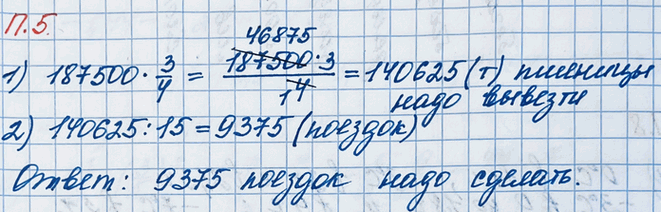 П.5.
46875
1) 187500 · 3/4 = 187500·3 / 14 = 140625 (т) пшеницы
надо вывезти
2) 140625 : 15 = 9375 (поездок)
Ответ: 9375 поездок надо сделать.